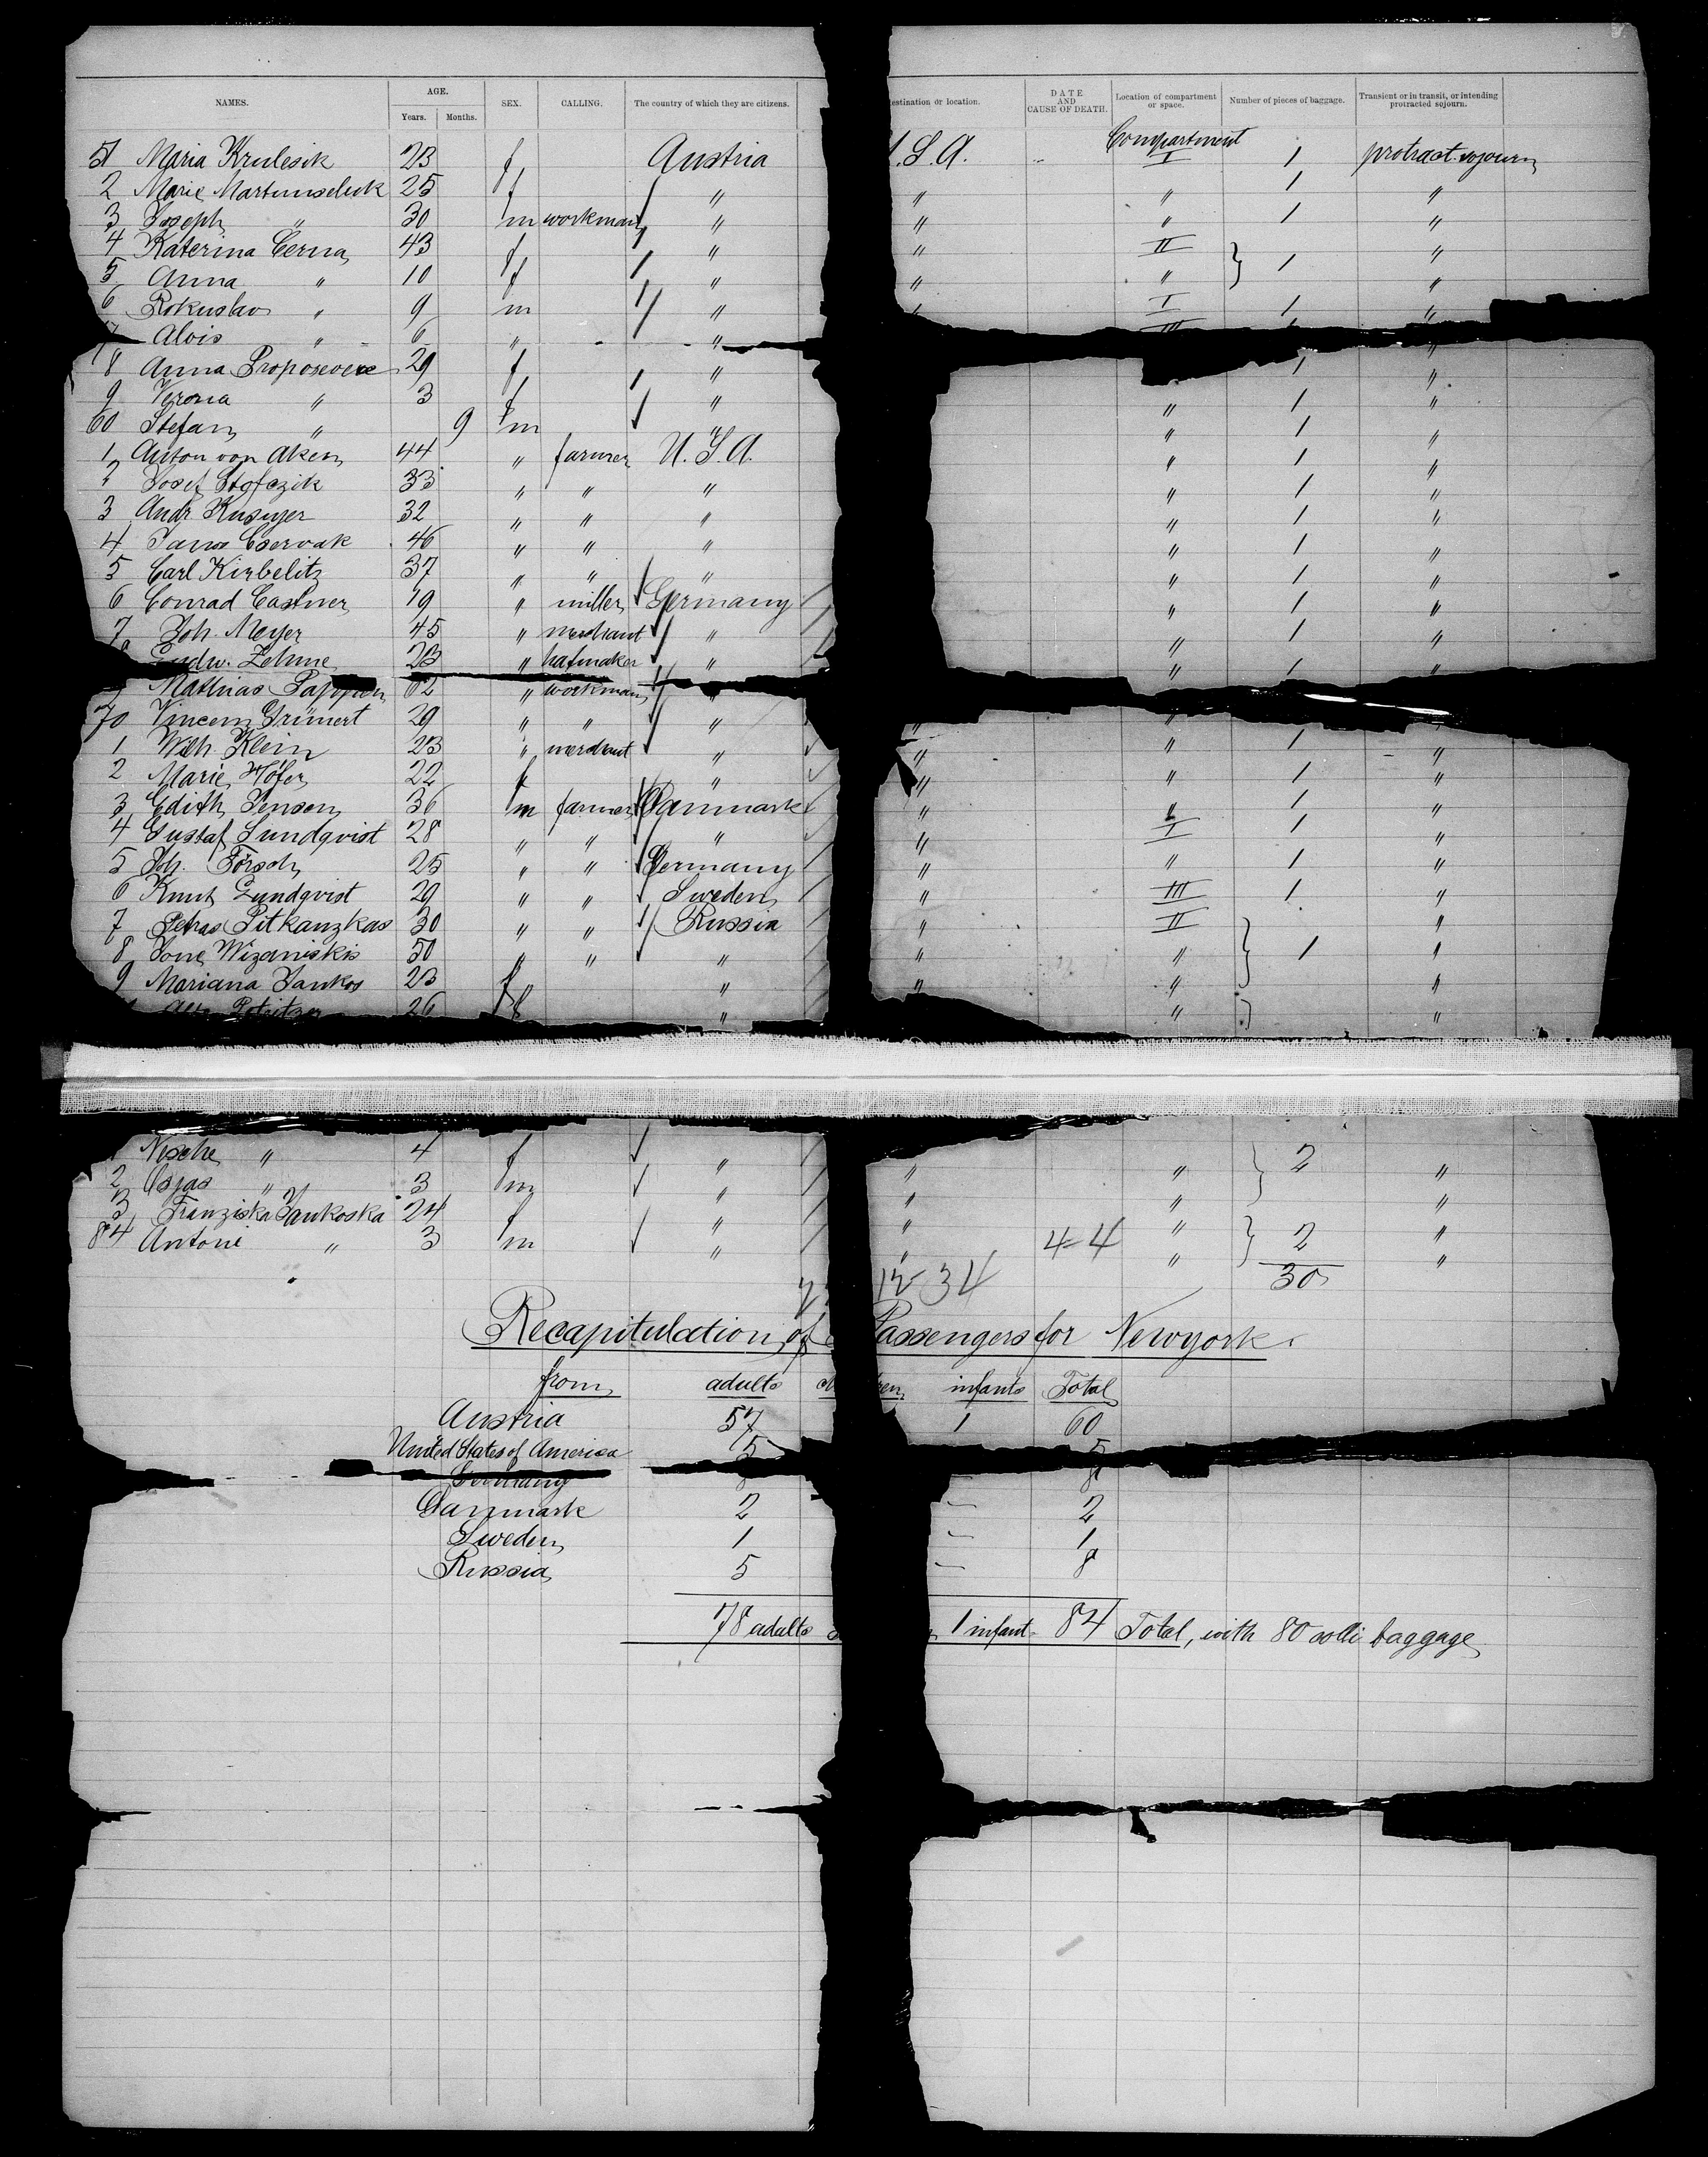 NAMES. AGE. Years. Months. SEX. CALLING. The country of which they are citizens. estination or location. DATE AND CAUSE OF DEATH. Location of compartment or space. Number of pieces of baggage. Transient or in transit, or intending protracted sojourn.
51 Maria Krulesik 23 f Austria .S.A. Compartment I 1 protract. sojourn
2 Marie 25 f " " " 1 "
3 Joseph " 30 m workman " " " 1 "
4 Katerina Cerna 43 f " " II "
5 Anna " 10 f " " " 1 "
6 Rokuslav " 9 m " I 1 "
7 Alois " 6 " " III
8 Anna 29 f " 1 "
9 Verona " 3 f " " 1 "
60 Stefan " 9 m " " 1 "
1 Anton von Aken 44 " farmer U.S.A. " 1 "
2 Josef Stofczik 33 " " " " 1 "
3 Andr. 32 " " " " 1 "
4 Janos Cservak 46 " " " " 1 "
5 Carl Kirbelitz 37 " " " " 1 "
6 Conrad Castner 19 " miller Germany " 1 "
7 Joh. Meyer 45 " merchant " " 1 "
Ludw. Zehme 23 " hatmaker " " 1 "
Mathias " workman "
70 Vincenz Grünert 29 " " " "
1 Wilh. Klein 23 " merchant " " " 1 "
2 Marie Höfer 22 f " " " 1 "
3 Edith Jensen 36 m farmer Danmark " " 1 "
4 Gustaf Lundqvist 28 " " " " I 1 "
5 Joh. Försch 25 " " Germany " " 1 "
6 Knut Lundqvist 29 " " Sweden " III 1 "
7 Petras Pitkanzkas 30 " " Russia " II "
8 Jone Wizaniskis 50 " " " " 1 "
9 Mariana Jankos 23 f " " " " "
26 f " " "
1 Nesche " 4 f " " " 2 "
2 Osjas " 3 m " " " "
3 Franziska Jankoska 24 f " " " "
84 Antoni " 3 m " " 4=4 " 2 "
12-34 30
Recapitulation of Passengers for Newyork.
from adults ren infants Total
Austria 57 1 60
United States of America 5 5
Germany 8
Danmark 2 — 2
Sweden 1 — 1
Russia 5 — 8
78 adults 1 infant- 84 Total, with 80 colli baggage